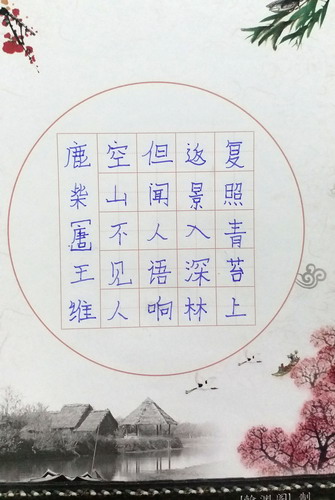 鹿柴[唐]王维
空山不见人
但闻人语响
返景入深林
复照青苔上